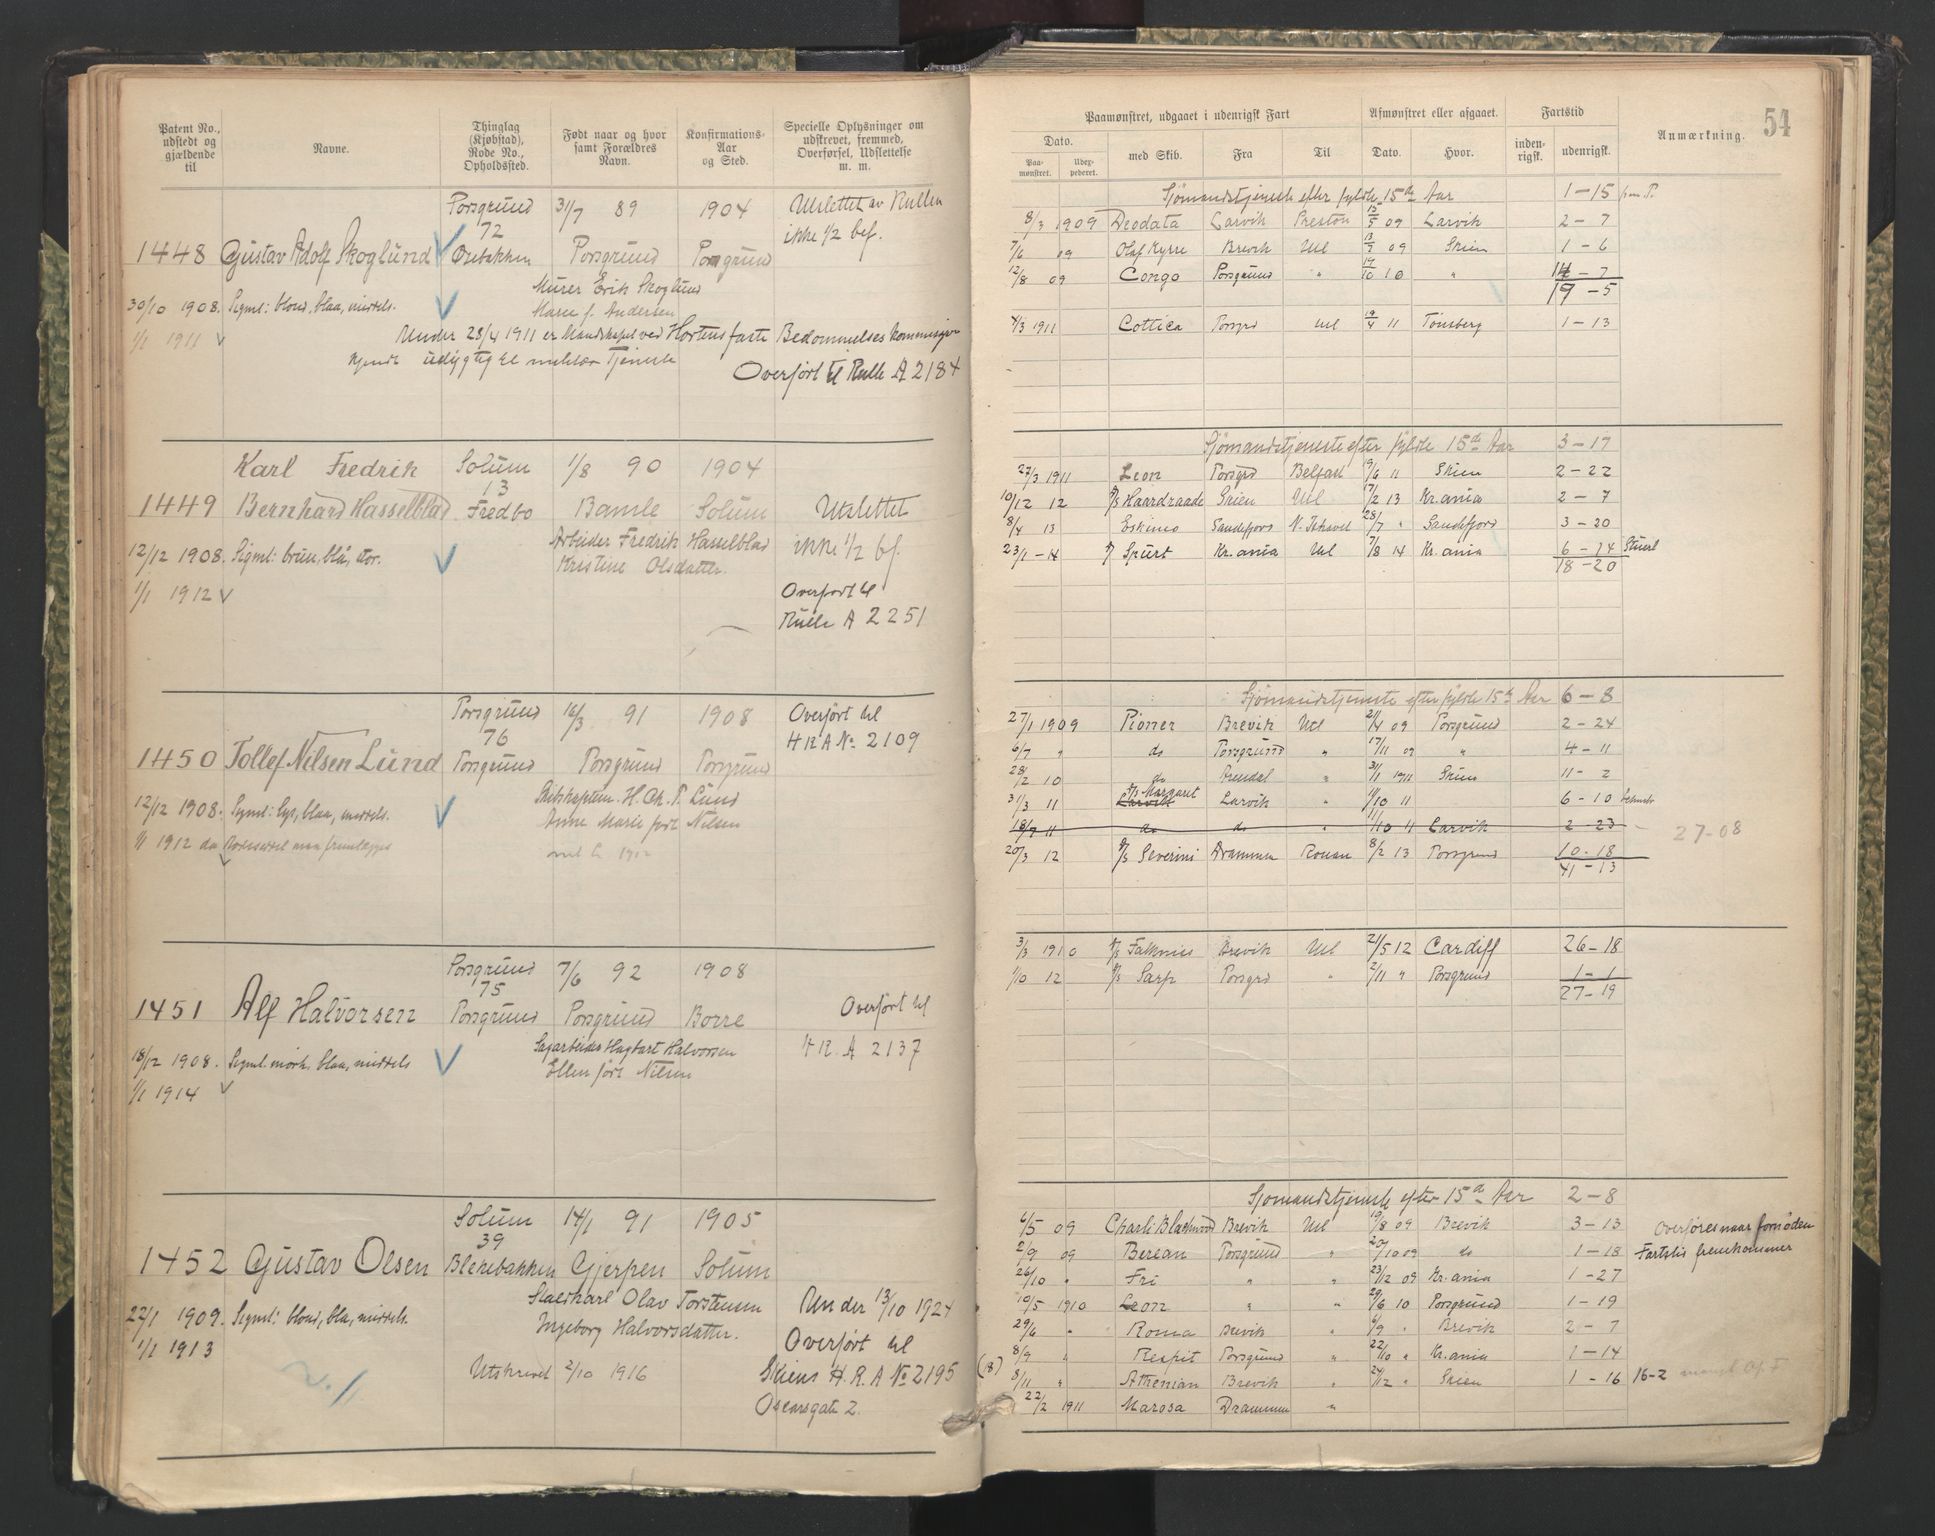 54
Patent No., udstedt og gjældende til
Navne.
Thinglag (Kjøbstad), Rode No., Opholdssted.
Født naar og hvor samt Forældres Navn.
Konfirmations-Aar og Sted.
Specielle Oplysninger om udskrevet, fremmed, Overførsel, Udslettelse m. m.
Paamønstret, udgaaet i udenrigsk Fart
Afmønstret eller afgaaet.
Fartstid
Anmærkning.
Dato.
Paa-mønstret.
Udex-pederet.
med Skib.
Fra
Til
Dato.
Hvor.
inden-rigsk.
udenrigsk.
Porsgrund 31/7 89 1904 Utslettet av Rullen
72 ikke 1/2 bef.
1448 Gustav Adolf Skoglund Porsgrund Porsgrund
Murer Erik Skoglund
30/10 1908. Signal: blond, blaa, middels. Maren f. Andersen
1/1 1911 Under 28/4 1911 er Mandskapet ved Hortens faste Bedømmelseskommisjon
kjendt udygtig til militær Tjeneste
Overført til Rulle A 2184
Sjømandstjeneste efter fyldte 15de Aar 1-15
8/3 1909 Deodata Larvik Preston 15/5 09 Larvik 2-7
7/6 09 Olaf Kyrre Brevik Utl 13/7 09 Skien 1-6
12/8 09 Congo Porsgrund " 19/10 10 " 14-7
19-5
4/3 1911 Cottica Porsgrd Utl 19/4 11 Tønsberg 1-13
Karl Fredrik Solum 1/8 90 1904
13
1449 Bernhard Hasselblad Fredbo Bamle Solum Utslettet
Arbeider Fredrik Hasselblad ikke 1/2 bf.
12/12 1908. Signal: brun, blå, stor. Kristine Olsdatter.
1/1 1912 Overført til
Rulle A 2251
Sjømandstjeneste efter fyldte 15de Aar 3-17
27/3 1911 Leon Porsgrd Belfast 19/6 11 Skien 2-22
10/12 12 Haardraade Skien Utl 17/2 13 Kr.ania 2-7
8/4 13 Eskimo Sandefjord 28/7 " Sandefjord 3-20
23/1-14 Spurt Kr.ania Utl 7/8 14 Kr.ania 6-14
18-20
Porsgrund 16/3 91 1908 Overført til
76 H R A No. 2109
1450 Tollef Nilsen Lund Porsgrund Porsgrund Porsgrund
Skibskaptein H. Chr. P. Lund
12/12 1908. Signal: lys, blaa, middels. Anne Marie født Nilsen
1/1 1912
Sjømandstjeneste efter fyldte 15de Aar 6-8
27/1 1909 Pioner Brevik Utl 21/4 09 Porsgrund 2-24
6/7 " do Porsgrund " 17/11 09 " 4-11
28/2 10 do Arendal " 31/1 1911 Skien 11-2
31/3 11 Larvik Margaret Larvik " 11/10 11 6-10
18/7 11 do do " 11/10 11 Larvik 2-23
27-08
20/3 12 Severini Drammen Rouen 8/2 13 Porsgrund 10-18
41-13
Porsgrund 7/6 92 1908
75
1451 Alf Halvorsen Porsgrund Porsgrund Borre Overført til
Sagarbeider Hagbart Halvorsen H R. A 2137
18/12 1908. Signal: mørk, blaa, middels Ellen født Nilsen
1/1 1914
3/3 1910 Falknes Brevik Utl 21/5 12 Cardiff 26-18
1/10 12 Sarp Porsgrd " 2/11 " Porsgrund 1-1
27-19
Solum 14/1 91 1905
39
1452 Gustav Olsen Blekebakken Gjerpen Solum
Staldkarl Olav Torstensen Under 13/10 1924
22/1 1909. Signal: blond, bla, middels. Ingeborg Halvorsdatter. Overført til
1/1 1913
Utskrevet 2/10 1916 Skiens H. R. A No 2195
Oscarsgate 2.
Sjømandstjeneste efter 15de Aar 2-8
6/5 09 Charli Blackwood Brevik Utl 19/8 09 Brevik 3-13 Overføres naar fornøden
2/9 09 Berean Porsgrund " 20/10 09 do 1-18 Fartstid fremkommer
26/10 " Fri " " 23/12 09 Kr.ania 1-27
10/5 1910 Leon " " 29/6 10 Porsgrund 1-19
29/6 " Roma Brevik " 6/9 " Brevik 2-7
8/9 " Respit Porsgrund " 22/10 " Kr.ania 1-14
(18) 8/11 " Athenian Brevik " 24/12 " Skien 1-16 16-2
22/2 1911 Marosa Drammen "